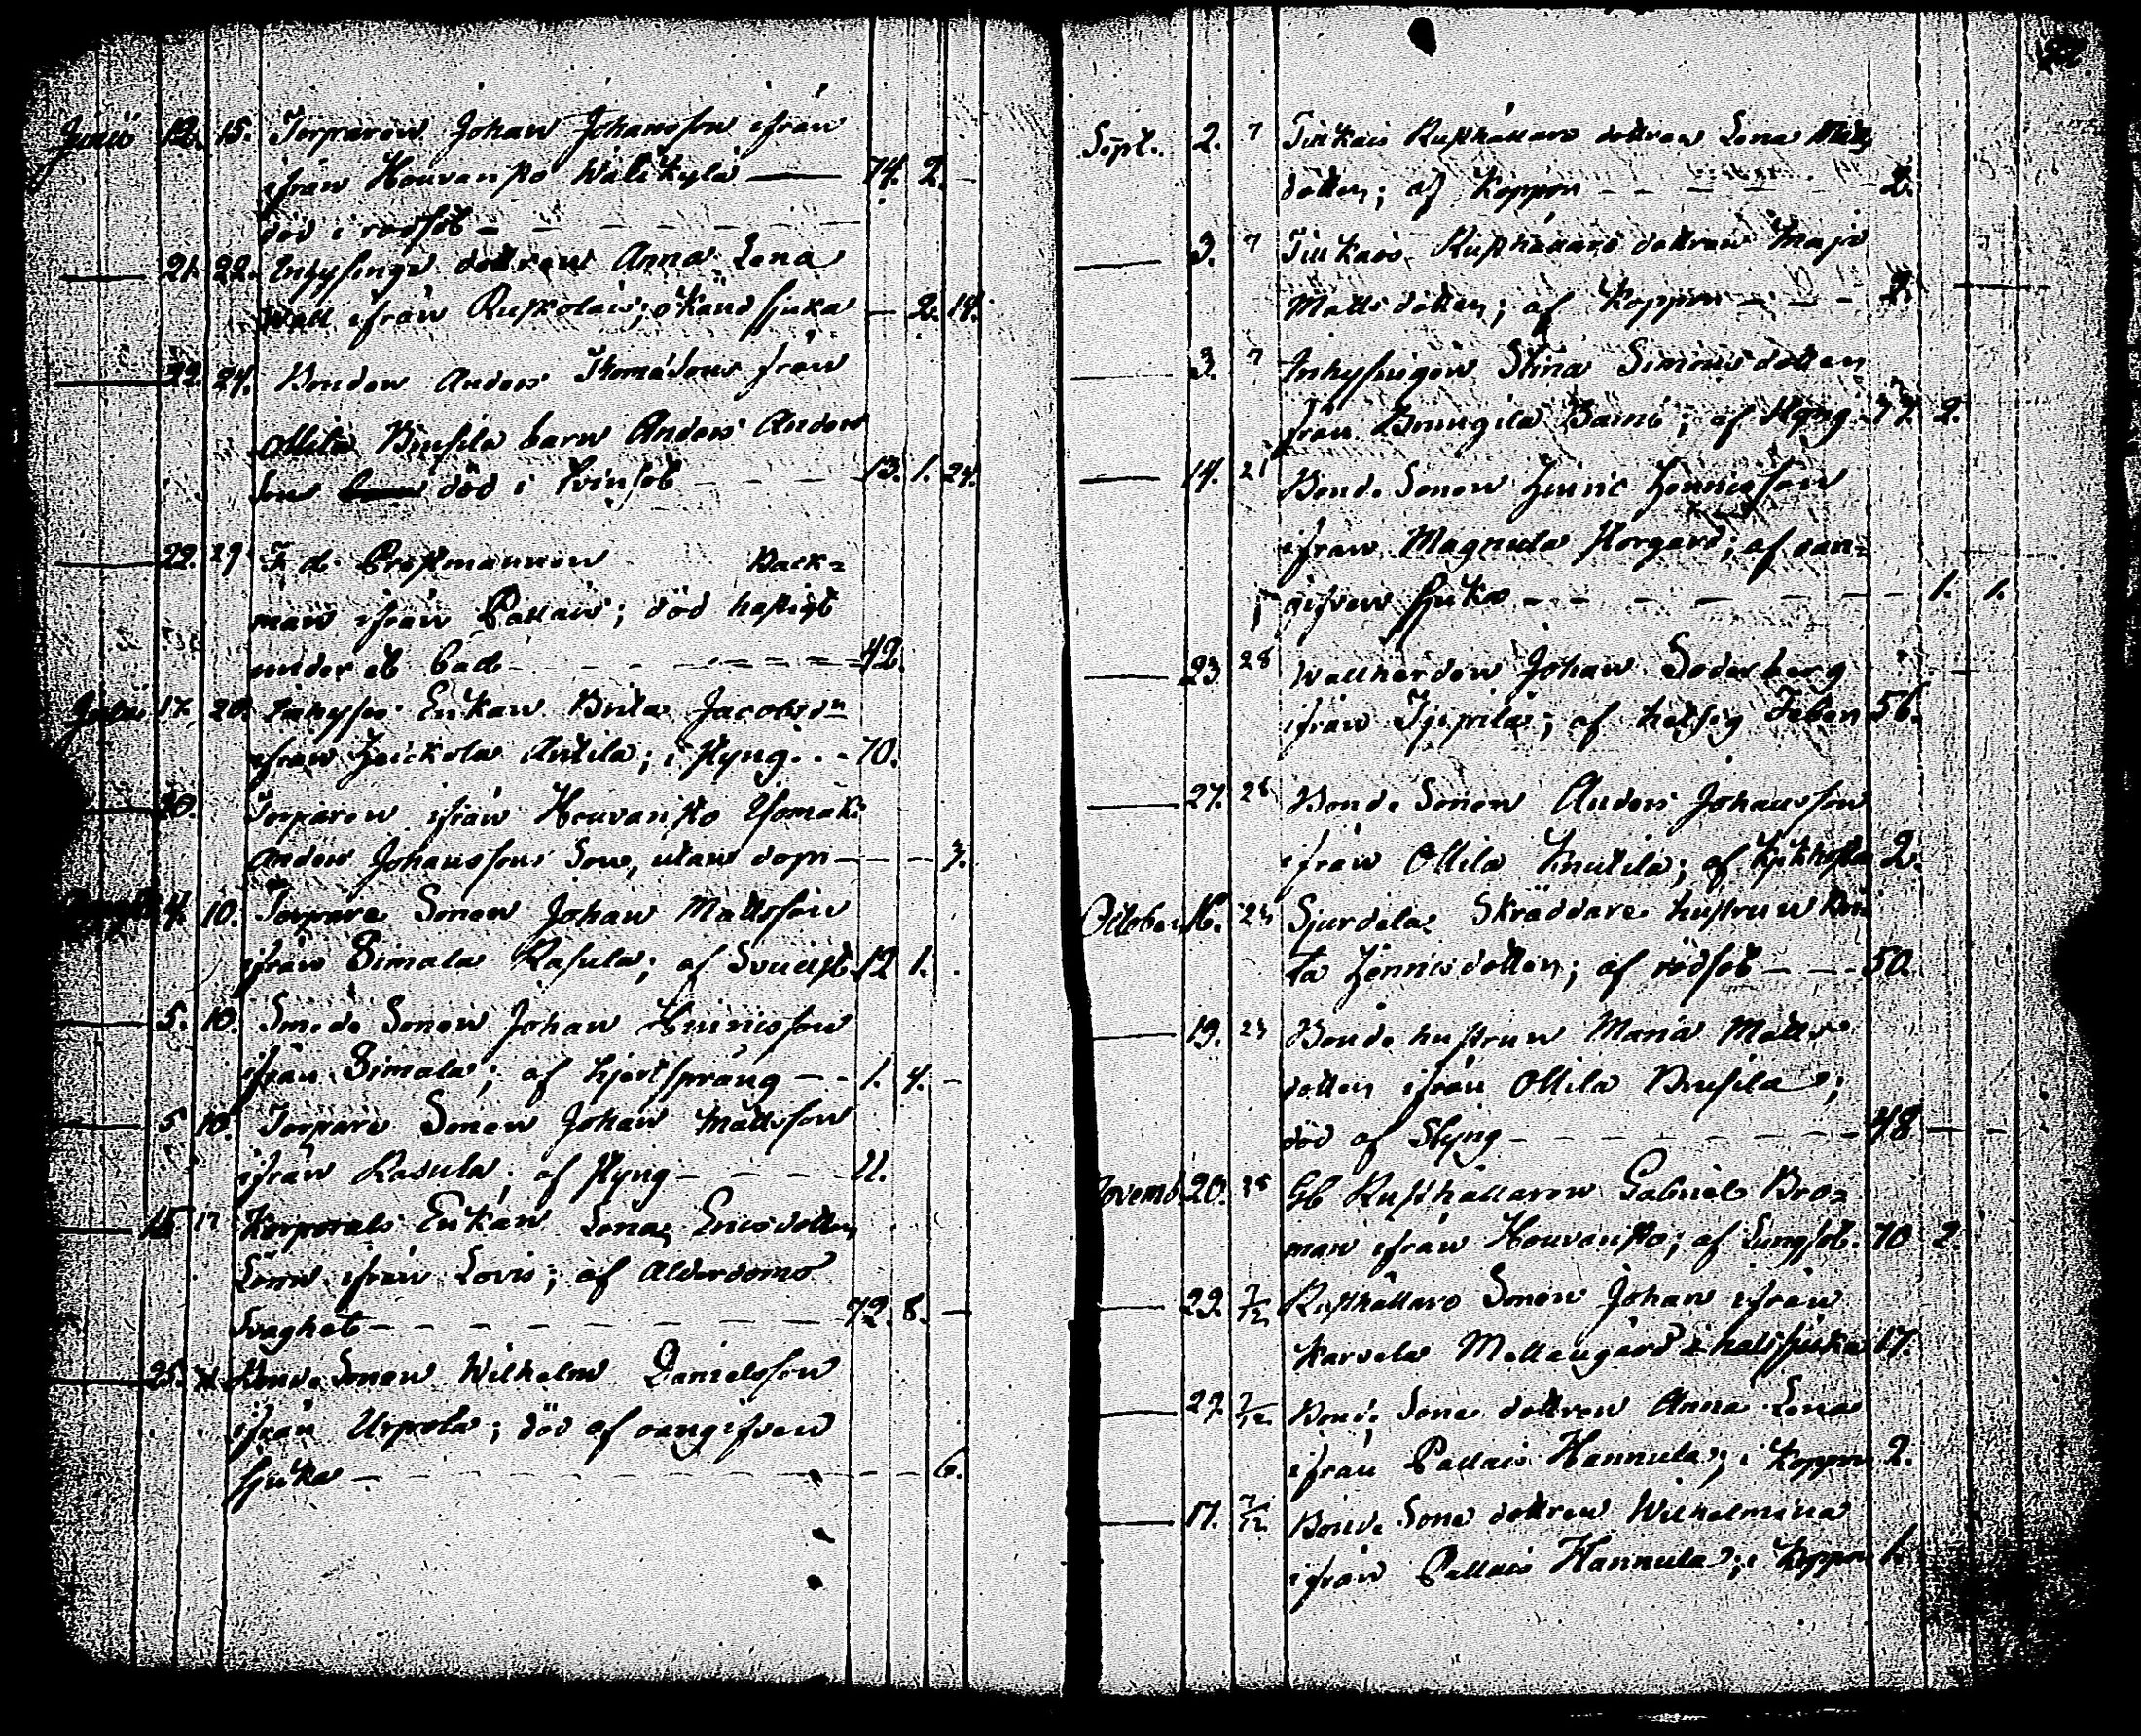 Junii 12. 15. Torparen Johan Johansson ifrån
ifrån Houvanko Wälikylä — 74. 2. —
död i rödsot
— 21. 22. Inhysinge dottren Anna Lena
Wall ifrån Ruskolais; okänd sjuka — 2. 14.
— 22. 24. Bonden Anders Thomasons från
Ollila Brusila barn Anders Anders
Son död i Tvinsot 13. 1. 24.
— 22. 29 F. d. Prestmannen Back-
man ifrån Pallais; död hastigt
under et bad 42.
Julii 17. 20. Inhyses Enkan Brita Jacobsdr
ifrån Antila; i Styng 70.
— 20. Torparen ifrån Houvanko Isomäki
Anders Johanssons Son, utan dop 3.
4. 10. Torpare Sonen Johan Mattsson
ifrån Simala Rasula; af 12 1.
— 5. 10. Smeds Sonen Johan Henricsson
ifrån Simala; af hjertsprång 1. 4. —
— 5 10. Torpare Sonen Johan Mattsson
ifrån Rasula; af Styng 11.
— 15. 17 Korporals Enkan Lena Ericsdotter
Lönn ifrån Lovis; af Alderdoms
Svaghet 72. 8. —
— 25. Bonde Sonen Wilhelm Danielsson
ifrån Urpola; död af oangifven
sjuka 6.
Sept. 2. 7 Tiukais Rusthållars dottren Lena Matts
dotter; af Koppor 2.
— 3. 7 Tiukais Rusthållars dottren Maja
Matts dotter; af Koppor 2. —
— 3. 7 Inhysingen Stina Simonsdotter
från Brusila; af Styng 77. 2.
— 14. 21 Bonde Sonen Henric Henricsson
ifrån Magnula Norgård; af oan-
gifven sjuka 1. 1.
— 23. 28 Wallherden Johan Söderberg
ifrån; af hetsig Feber 56.
— 27. 28 Bonde Sonen Anders Johansson
ifrån Ollila Knutila; af Kikhosta 2.
October 16. 24 Sjurdela Skräddare hustrun Bri
ta Henricsdotter; af rödsot 50.
— 19. 24 Bonde hustrun Maria Matts
dotter ifrån Ollila Brusila;
död af Styng 48 — —
Novemb. 20. Gl Rusthållaren Gabriel Bro-
man ifrån Houvanko; af Lungsot. 70 2.
— 29. 7/12 Rusthållars Sonen Johan ifrån
Karvela Mellangård i halssjuka 17.
— 27 7/12. Bonde Sons dottren Anna Lena
ifrån Pallais Hannula; i Koppor 2.
— 17. 7/12. Bonde Sons dottren Wilhelmina
ifrån Pallais Hannula; i Koppor 1.